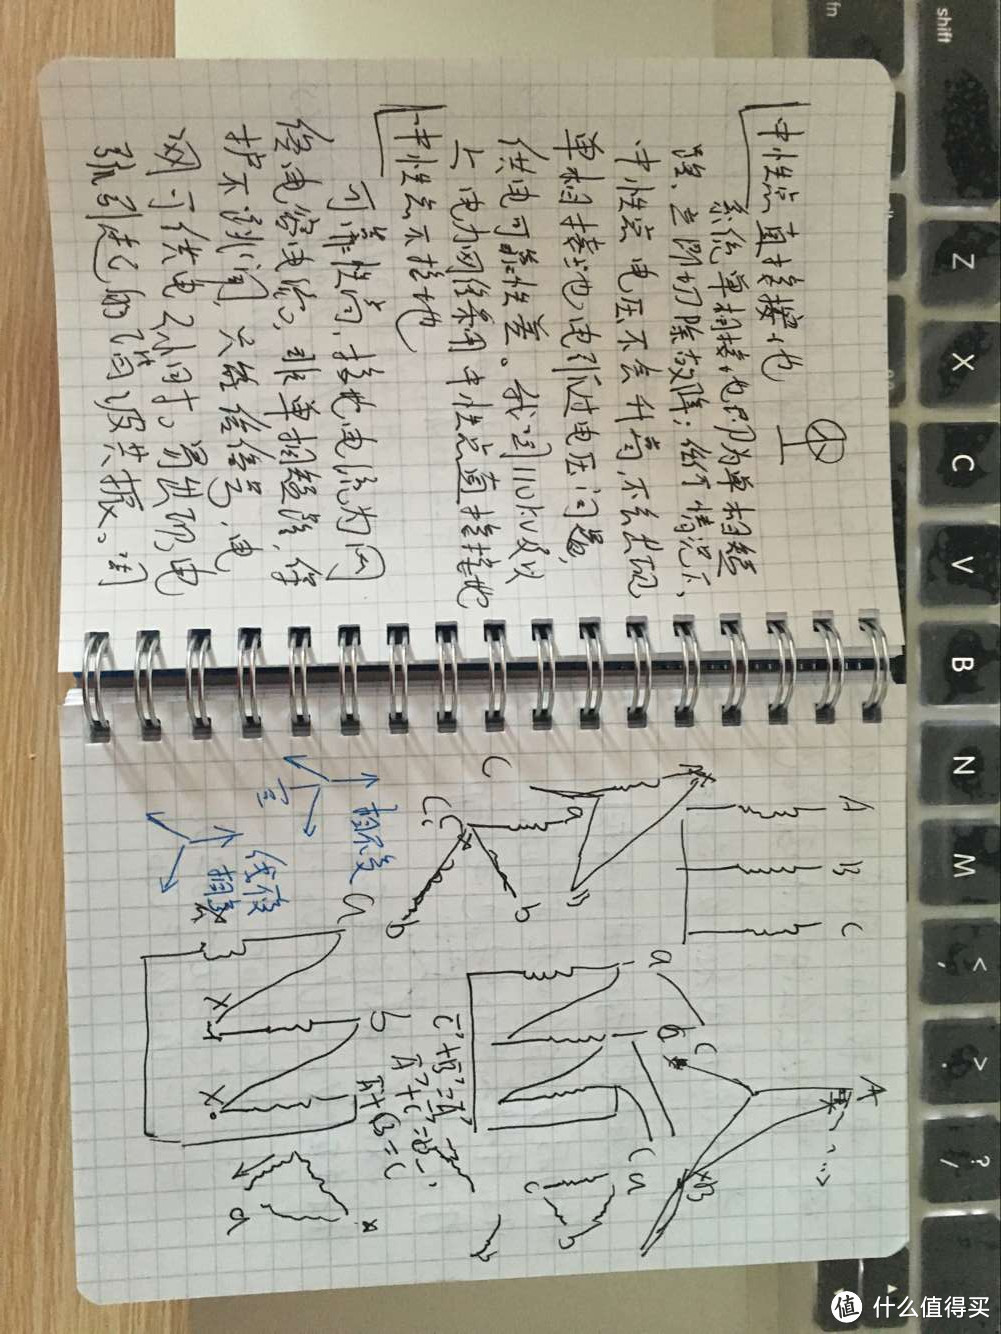 中性点直接接地
系统单相接地即为单相短
路,立即切除故障;任何情况下,
中性点电压不会升高,不会出现
单相接地电弧过电压问题,
供电可靠性差。我国110kV及以
上电力网络采用中性点直接接地
中性点不接地
可靠性高,接地电流为网
络电容电流,非单相短路,保
护不跳闸,只能给信号,电
网可供电2小时。易供弧电
弧引起的谐波共振。闭
A B C
A
B
C
a
B
C
a
b
b
相反变
线夜
相变
a
b
c
a
C
b
C'+B'=A'
A'+C'=B'
A'+B=C
a
b
X
X
a
shift
fn
Z
X
C
V
B
N
M
<
,
>
.
?
/
值 什么值得买